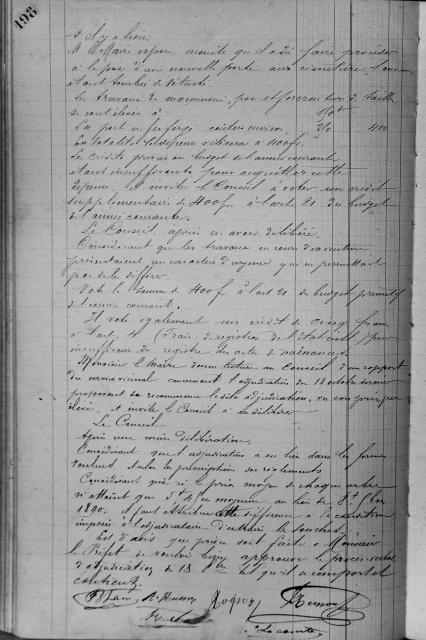 198
s'il y a lieu.
M. le Maire expose ensuite qu'il a dû faire procéder
à la pose d'une nouvelle porte au cimetière, l'ancienne
étant tombée de vétusté.
Les travaux de maçonnerie, pose et fourniture de taille
se sont élevés à
La porte en fer forgé coûtera environ 400
La totalité de la dépense s'élèvera à 400 f.
Les crédits prévus au budget de l'année courante
étant insuffisants pour acquitter cette
dépense, il invite le Conseil à voter un crédit
supplémentaire de 400 f. à l'art. 20 du budget
de l'année courante.
Le Conseil après en avoir délibéré,
Considérant que les travaux en cours d'exécution
présentaient un caractère d'urgence qui ne permettait
pas de les différer.
Vote la somme de 400 f à l'art 20 du budget primitif
de l'année courante.
Et vote également un crédit de cinq francs
à l'art. 4 (Frais de registres de l'état civil) pour
insuffisance du registre des actes de naissances.
Monsieur le Maire donne lecture au Conseil d'un rapport
du service vicinal concernant l'adjudication du 18 octobre dernier
proposant de recommencer la dite adjudication, vu son prix peu
élevé, et invite le Conseil à en délibérer
Le Conseil
Après une mûre délibération,
Considérant que l'adjudication a eu lieu dans les formes
voulues selon les prescriptions des règlements
Considérant que si le prix moyen de chaque arbre
n'atteint que en moyenne au lieu de
1890, il faut attribuer cette différence à la condition
imposée à l'adjudicataire d'extraire les souches.
Est d'avis que prière soit faite à Monsieur
le Préfet de vouloir bien approuver le procès-verbal
d'adjudication du 18 tel qu'il se comporte et
contient.
Lecomte